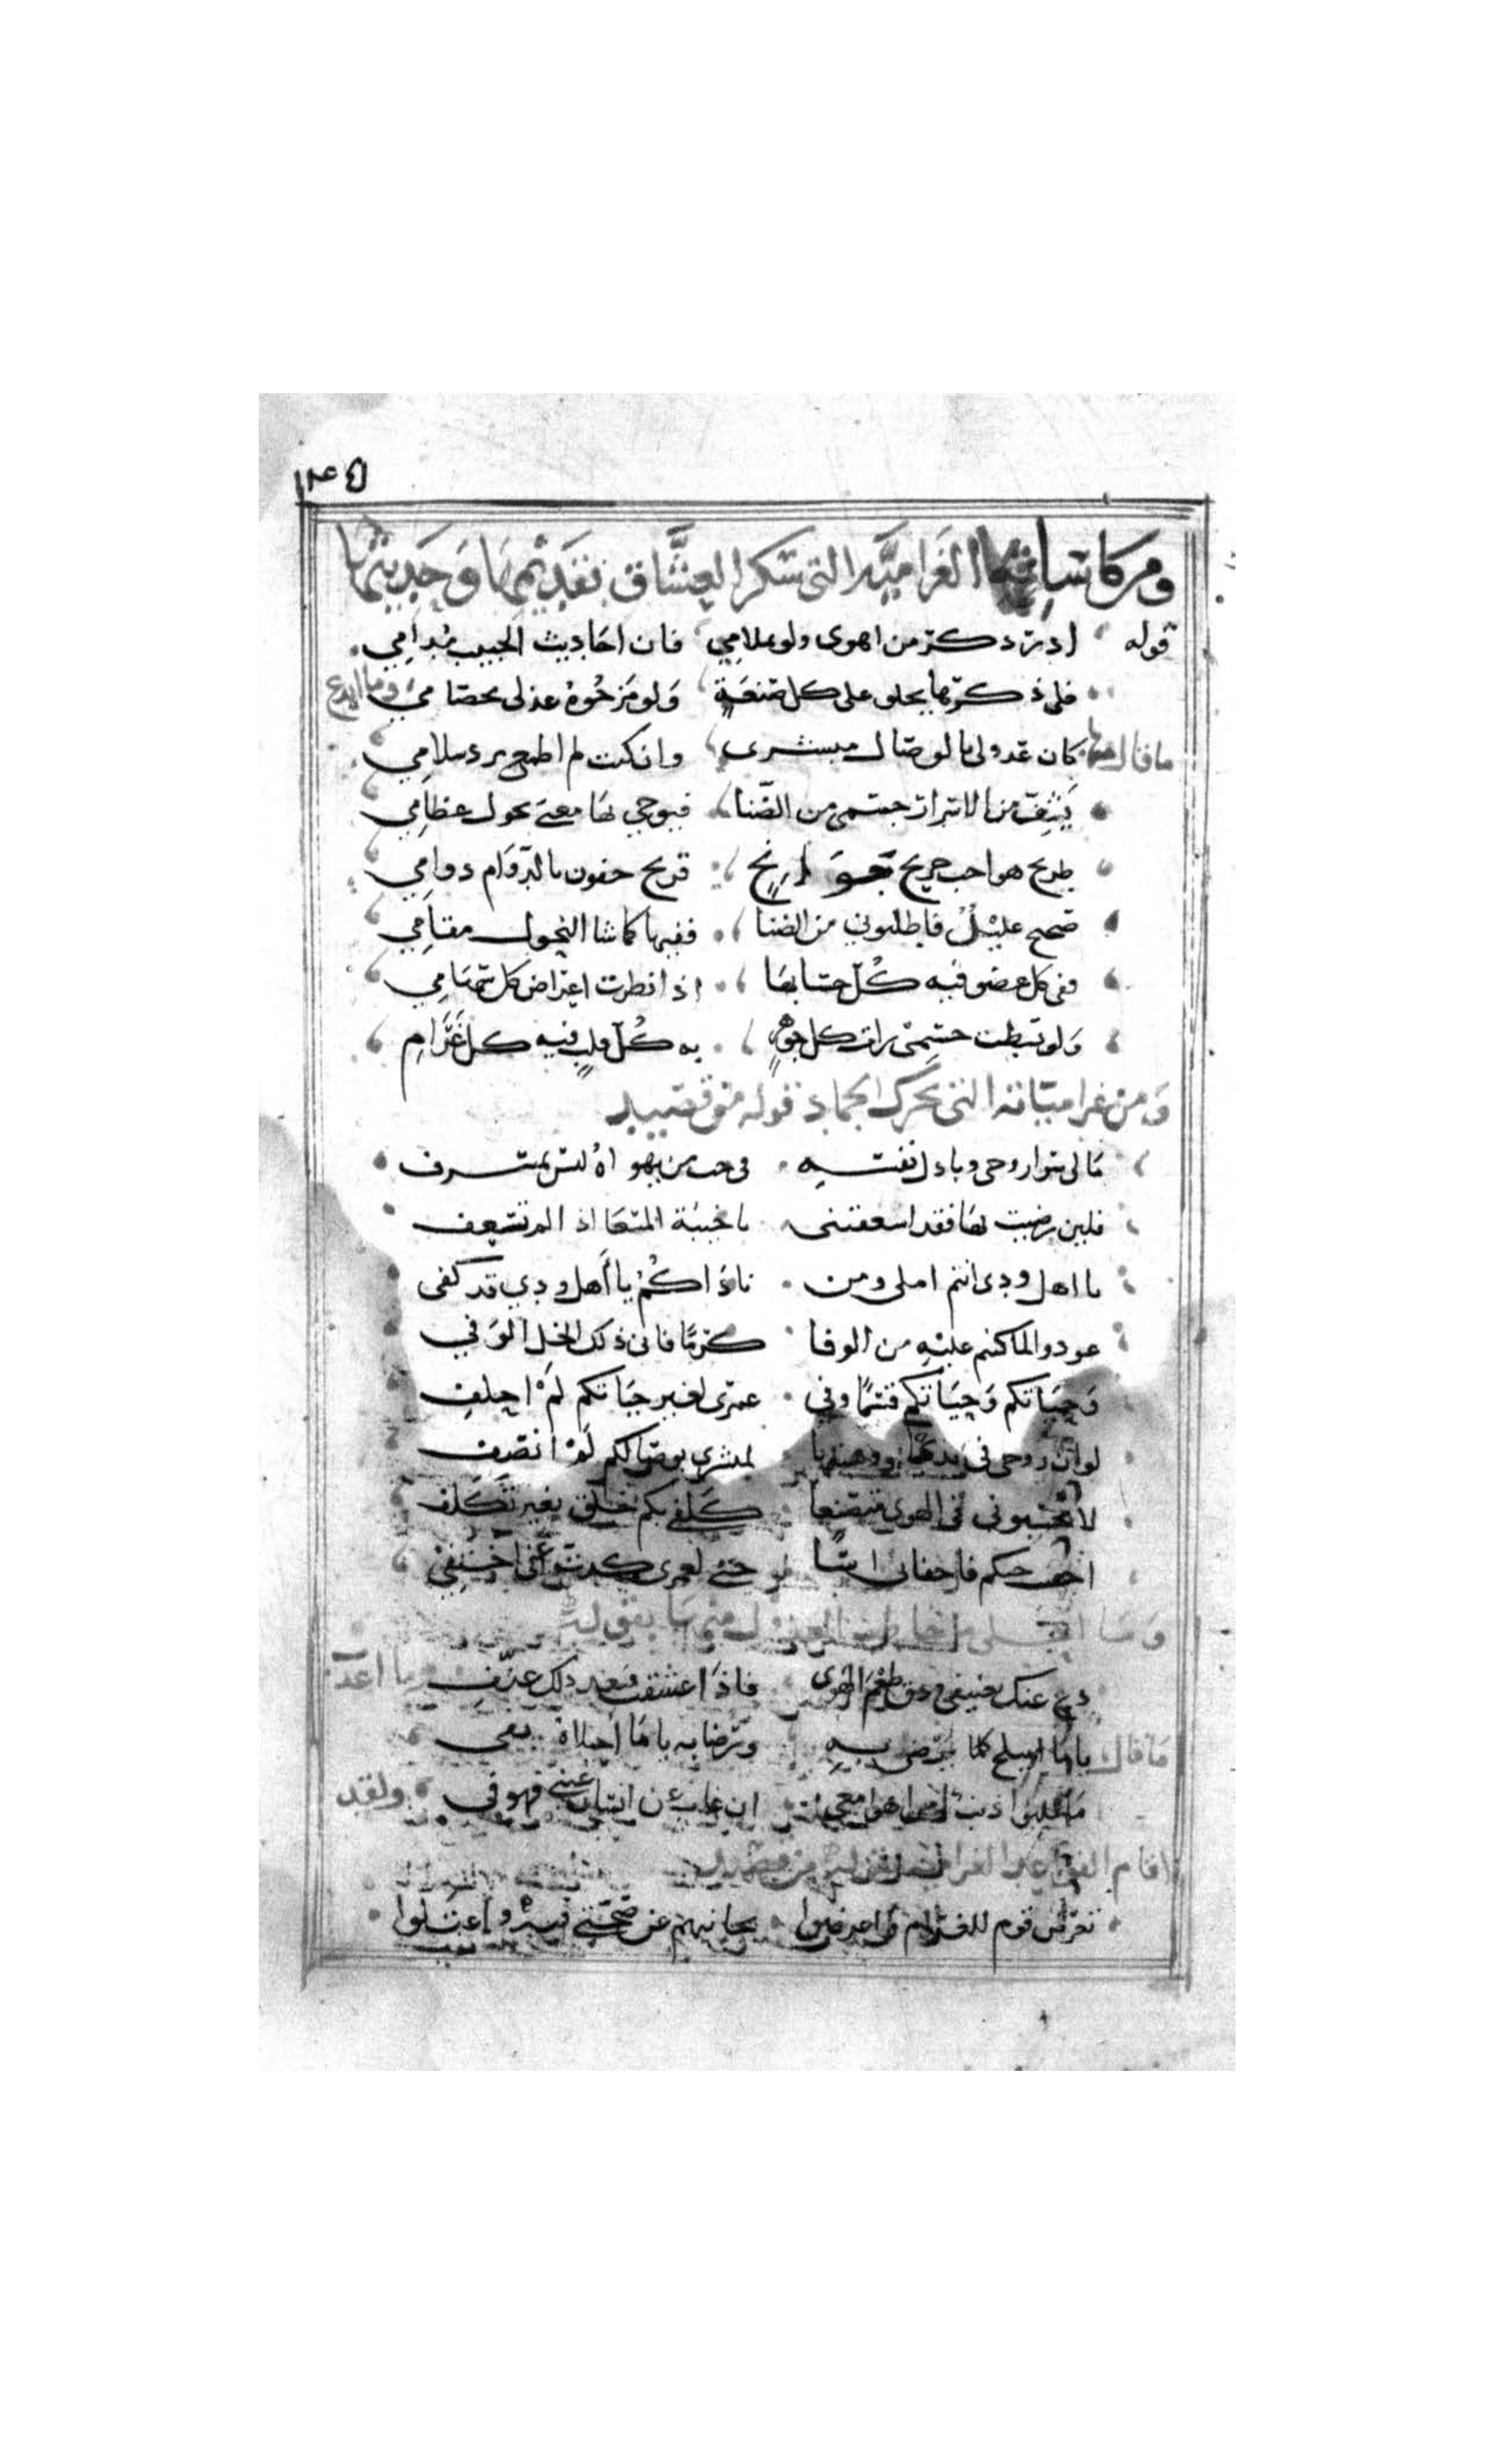 ١٣٥
ومن كاساته الغرامية التى سكر العشاق بقديمها وحديثها
قوله ادر ذكر من اهوى ولو بملامي فان احاديث الحبيب مدامي
فلى ذكرها يحلو على كل صنعةٍ ولو مزجوه عذلى بخصامي وما ابدع
ما قال منها كان عذولى بالوصال مبشرى وان كنت لم اطمع برد سلامي
يشف من الاسرار جسمى من الضنا فيوحي بها معنى نحول عظامي
طريح هوا حب جريح جوارح قريح جفون بالدوام دوامي
صحيح عليلٌ فاطلبوني من الضنا ففيها كما شا النحول مقامي
ففى كل عضو فيه كل حشا بها اذا نظرت اغراض كل سهامي
ولو بسطت جسمى رات كل جوهرٍ به كل قلبٍ فيه كل غرام
ومن غرامياته التى تحرك الجماد قوله من قصيد
ما لى سوا روحى وباذل نفسه فى حب من يهواهُ ليس بمسرف
فلين رضيت بها فقد اسعفتنى يا خيبة المسعا اذا لم تسعف
يا اهل ودى انتم املى ومن ناداكمُ يا أهل ودي قد كفى
عودوا لما كنتم عليه من الوفا كرمًا فانى ذلك الخل الوفي
وحياتكم وحياتكم قسمًا وفي عمرى بغير حياتكم لمْ احلف
لو ان روحى فى يدى ووهبتها لمبشرى بوصالكم لمْ انصف
لا تحسبونى فى الهوى متصنعا كلفى بكم خلق بغير تكلف
اخفيت حبكم فاخفانى اسًا حتى لعمرى كدت عنى اختفي
وما احلى ما خاطب العذول منها بقوله
دع عنك تعنيفى وذق طعم الهوى فاذا عشقت فبعد ذلك عنف وما اعذب
ما قال يا ما اميلح كلما يرضى به ورضابه يا ما احيلاه بفى
ان غاب عن انسان عينى فهو في ولقد
اقام القواعد الغرامية بقوله من قصيد
تعرض قوم للغرام واعرضوا بجانبهم عن صحتى فيه واعتلوا